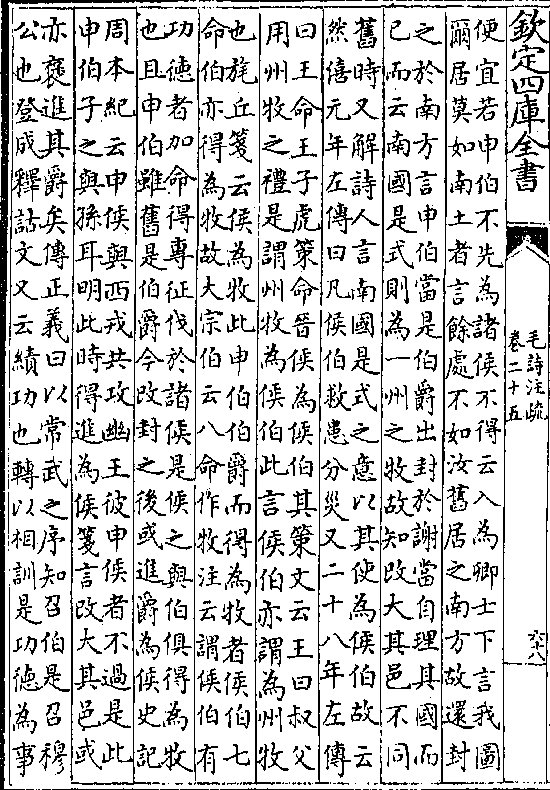 欽定四庫全書
毛詩注疏
卷二十五
六十八
便宜若申伯不先為諸侯不得云入為卿士下言我圖
爾居莫如南土者言餘處不如汝舊居之南方故還封
之於南方言申伯當是伯爵出封於謝當自理其國而
已而云南國是式則為一州之牧故知改大其邑不同
舊時又解詩人言南國是式之意以其使為侯伯故云
然僖元年左傳曰凡侯伯救患分災又二十八年左傳
曰王命王子虎策命晉侯為侯伯其策文云王曰叔父
用州牧之禮是謂州牧為侯伯此言侯伯亦謂為州牧
也旄丘箋云侯為牧此申伯伯爵而得為牧者侯伯七
命伯亦得為牧故大宗伯云八命作牧注云謂侯伯有
功德者加命得專征伐於諸侯是侯之與伯俱得為牧
也且申伯雖舊是伯爵今改封之後或進爵為侯史記
周本紀云申侯與西戎共攻幽王彼申侯者不過是此
申伯子之與孫耳明此時得進為侯箋言改大其邑或
亦褒進其爵矣傳正義曰以常武之序知召伯是召穆
公也登成釋詁文又云績功也轉以相訓是功德為事